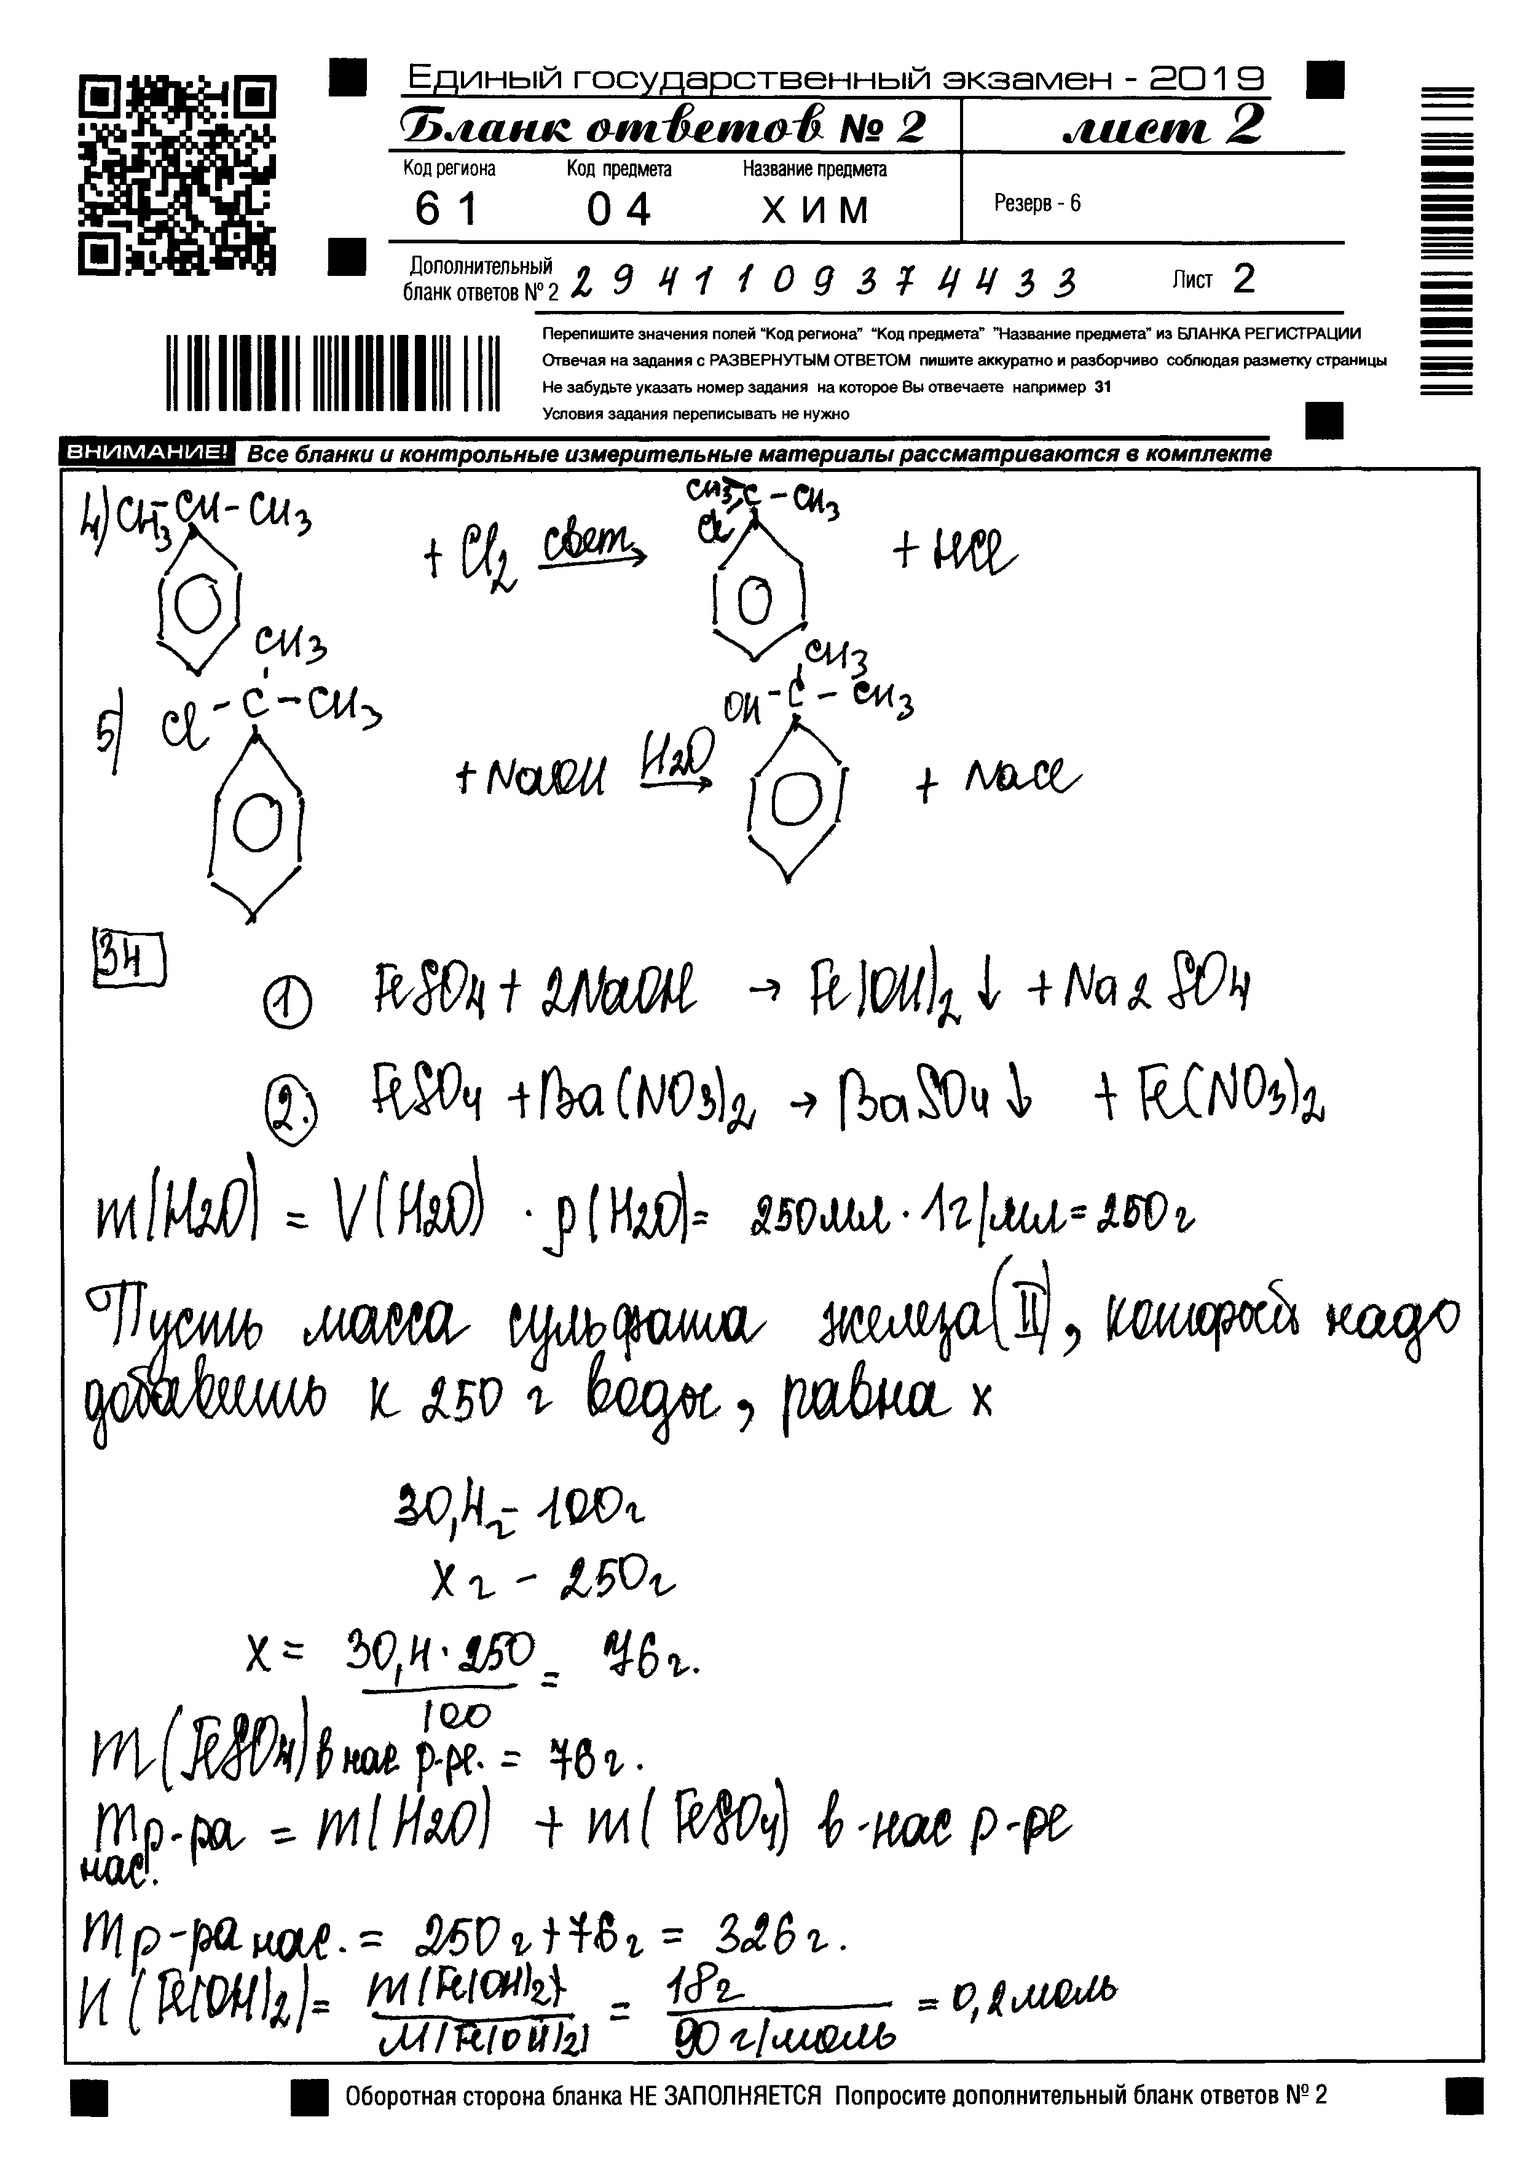 Единый государственный экзамен - 2019
Бланк ответов № 2 лист 2
Код региона Код предмета Название предмета
61 04 ХИМ Резерв - 6
Дополнительный бланк ответов № 2 2941109374433 Лист 2
Перепишите значения полей "Код региона" "Код предмета" "Название предмета" из БЛАНКА РЕГИСТРАЦИИ
Отвечая на задания с РАЗВЕРНУТЫМ ОТВЕТОМ пишите аккуратно и разборчиво соблюдая разметку страницы
Не забудьте указать номер задания на которое Вы отвечаете например 31
Условия задания переписывать не нужно
ВНИМАНИЕ! Все бланки и контрольные измерительные материалы рассматриваются в комплекте
4) CH3-CH-CH3 + Cl2 свет→ CH3-C-CH3 Cl + HCl
5) Cl-C-CH3 CH3 + NaOH H2O→ OH-C-CH3 CH3 + NaCl
34
① FeSO4 + 2NaOH → Fe(OH)2↓ + Na2SO4
②. FeSO4 + Ba(NO3)2 → BaSO4↓ + Fe(NO3)2
m(H2O) = V(H2O) · ρ(H2O) = 250мл · 1г/мл = 250г
Пусть масса сульфата железа(II), который надо
добавить к 250 г воды, равна x
30,4г - 100г
x г - 250г
x = 30,4·250/100 = 76г.
m(FeSO4)в нас. р-ре. = 76г.
mр-ра нас. = m(H2O) + m(FeSO4) в-нас р-ре
mр-ра нас. = 250г+76г = 326г.
n(Fe(OH)2) = m(Fe(OH)2)/M(Fe(OH)2) = 18г/90г/моль = 0,2моль
Оборотная сторона бланка НЕ ЗАПОЛНЯЕТСЯ Попросите дополнительный бланк ответов № 2